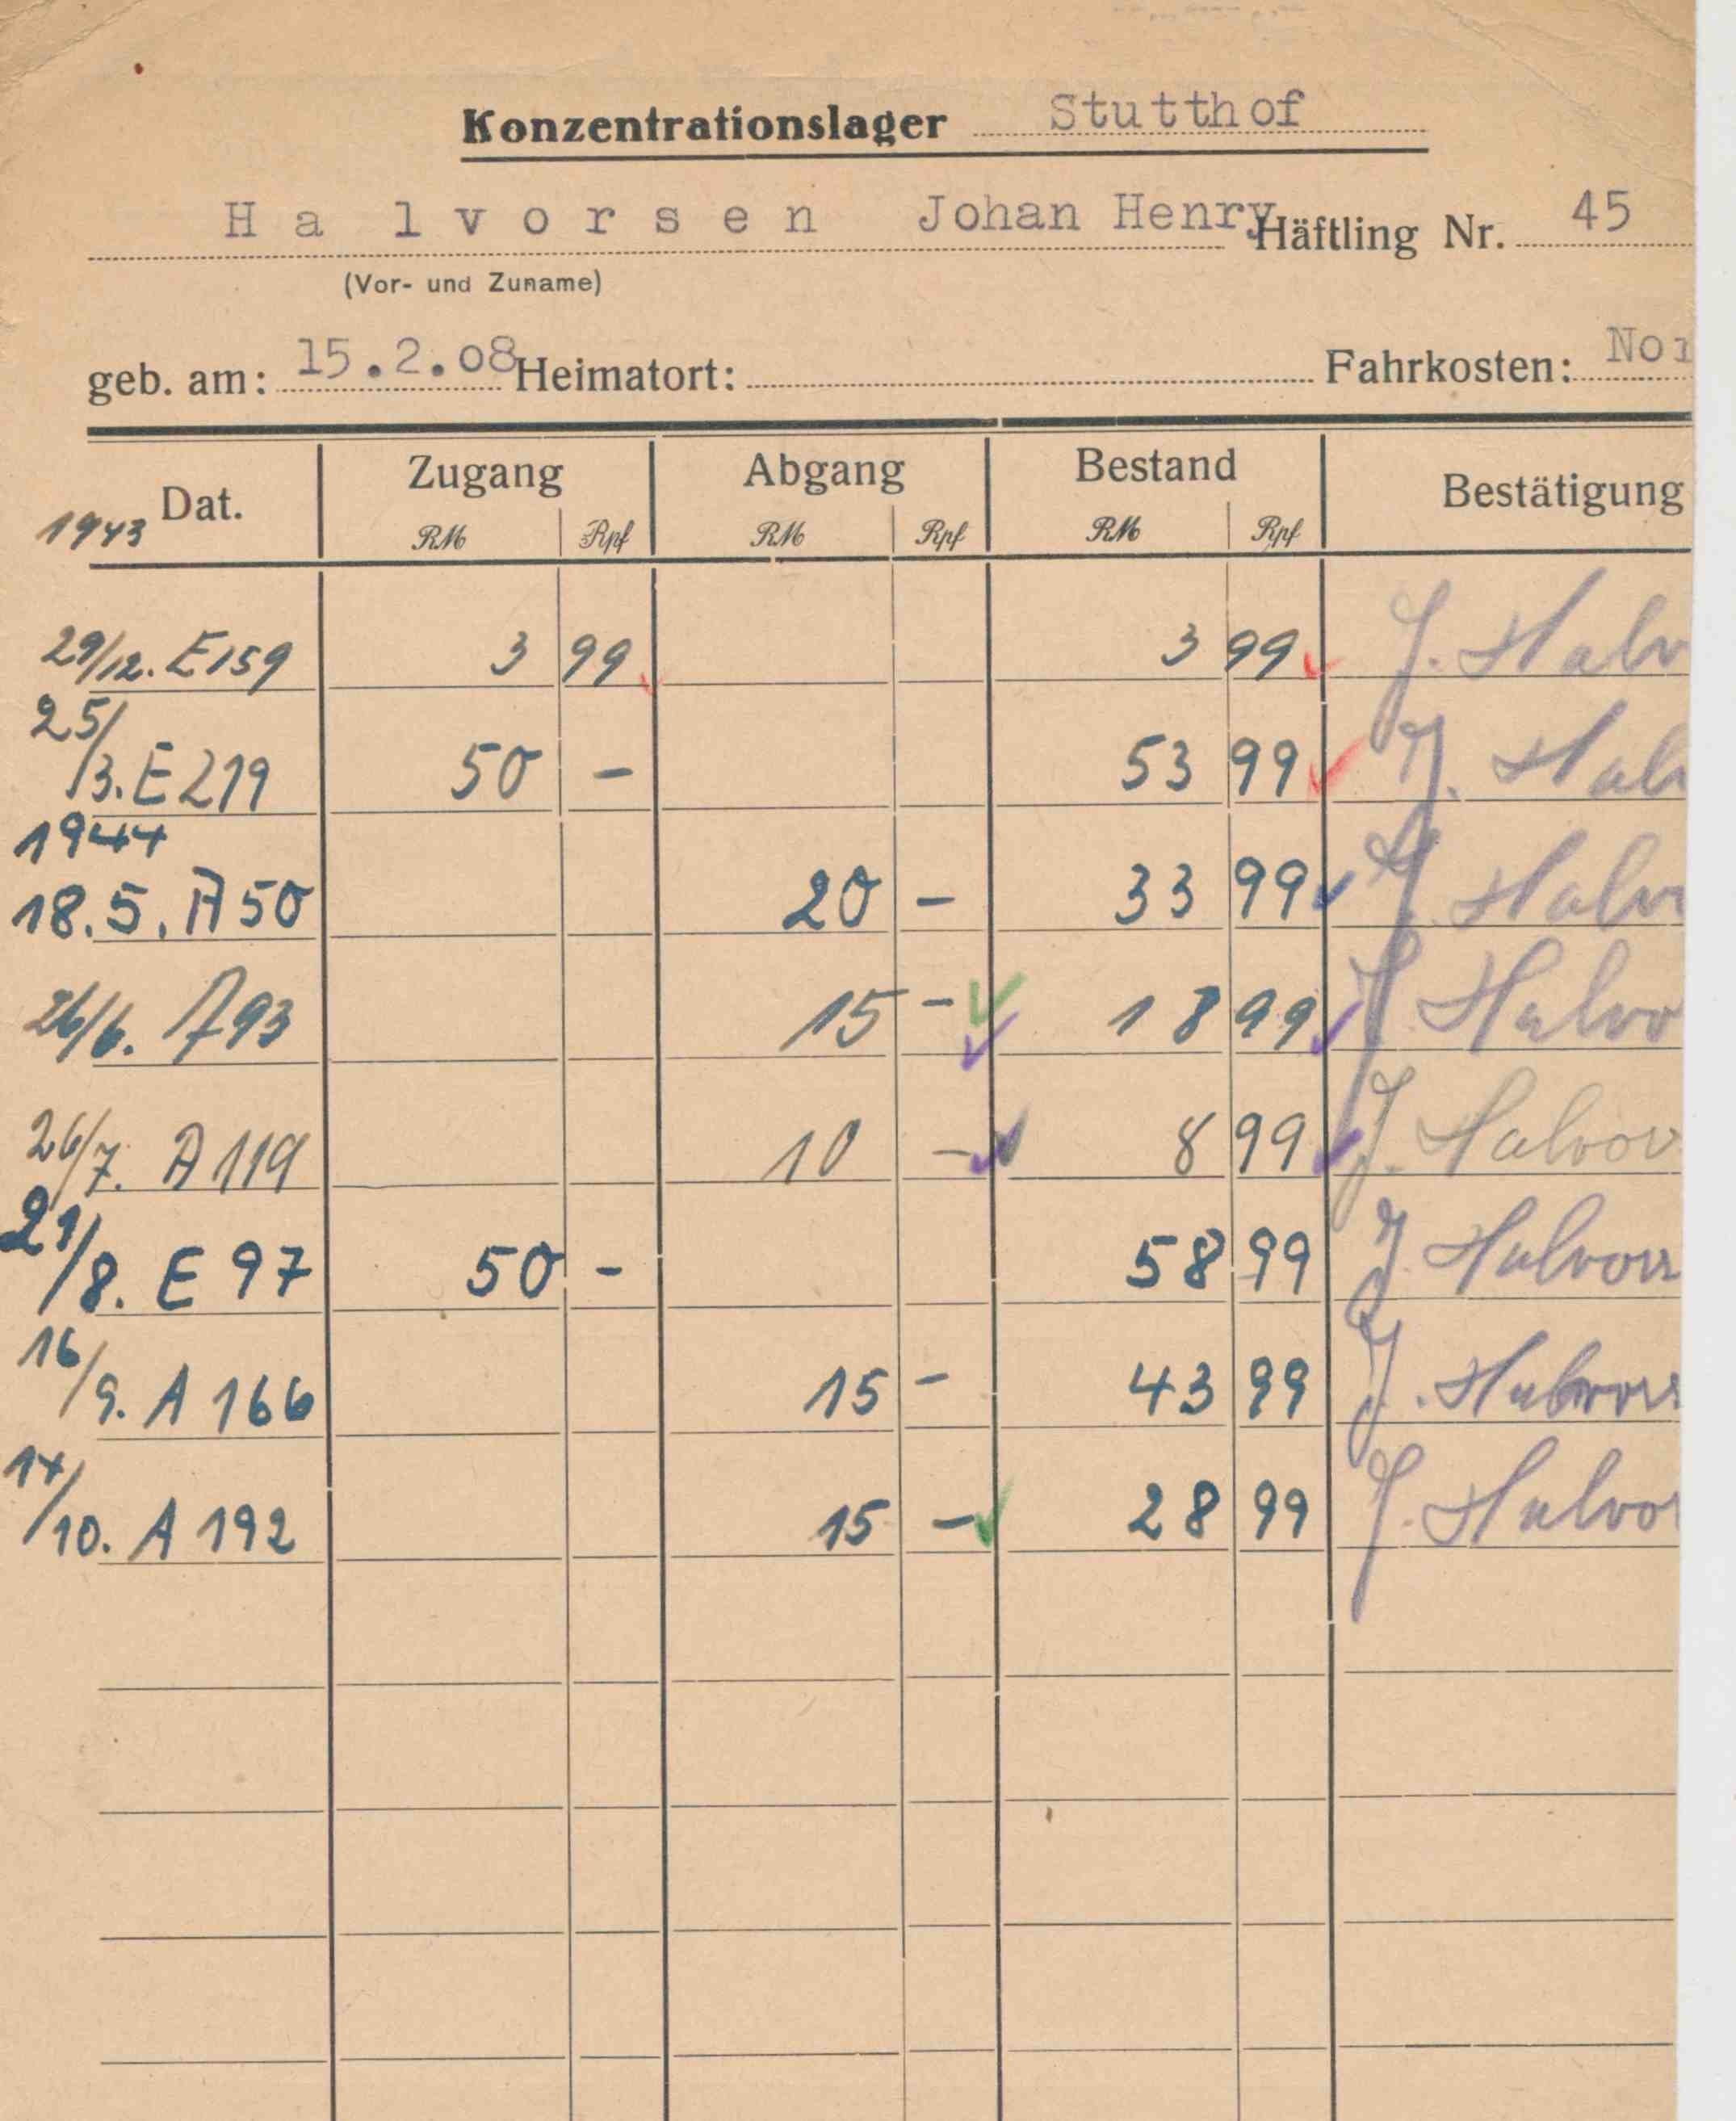 Konzentrationslager Stutthof
Halvorsen Johan Henry Häftling Nr. 45
(Vor- und Zuname)
geb. am: 15.2.08 Heimatort: Fahrkosten: Nor
Dat. Zugang Abgang Bestand Bestätigung
1943 RM Rpf RM Rpf RM Rpf
29/12. E159 3 99 3 99 J. Halv
25/3. E219 50 - 53 99 J. Halv
1944
18.5. A50 20 - 33 99 J. Halvo
26/6. A93 15 - 18 99 J. Halvo
26/7. A119 10 - 8 99 J. Halvor
21/8. E 97 50 - 58 99 J. Halvors
16/9. A 166 15 - 43 99 J. Halvors
14/10. A 192 15 - 28 99 J. Halvo